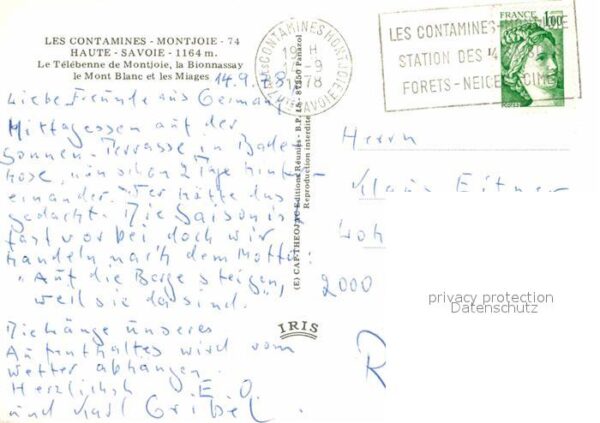 LES CONTAMINES - MONTJOIE - 74
HAUTE - SAVOIE - 1164 m.
Le Télébenne de Montjoie, la Bionnassay
le Mont Blanc et les Miages
14.9.78
Liebe Freunde aus Germany
Mittagessen auf der
Sonnen-Terrasse in Bade-
hose, nun schon 2 Tage hinter-
einander. Wer hätte das
gedacht. Die Saison is
fast vorbei doch wir
handeln nach dem Motto:
"Auf die Berge steigen,
weil sie da sind."
Die Länge unseres
Aufenthaltes wird vom
Wetter abhängen.
Herzlichst E. O.
und Karl Gribel
(E) CAP-THEOJAC Editions Réunies - B.P. 15 - 87350 Panazol
Reproduction interdite
IRIS
LES CONTAMINES MONTJOIE
18 H
-9
1978
74 HTE SAVOIE
LES CONTAMINES-
STATION DES 4
FORETS-NEIGE-CIMES
FRANCE 1,00
POSTES
Herrn
Klaus Eitner
Loh
2000
R
privacy protection
Datenschutz